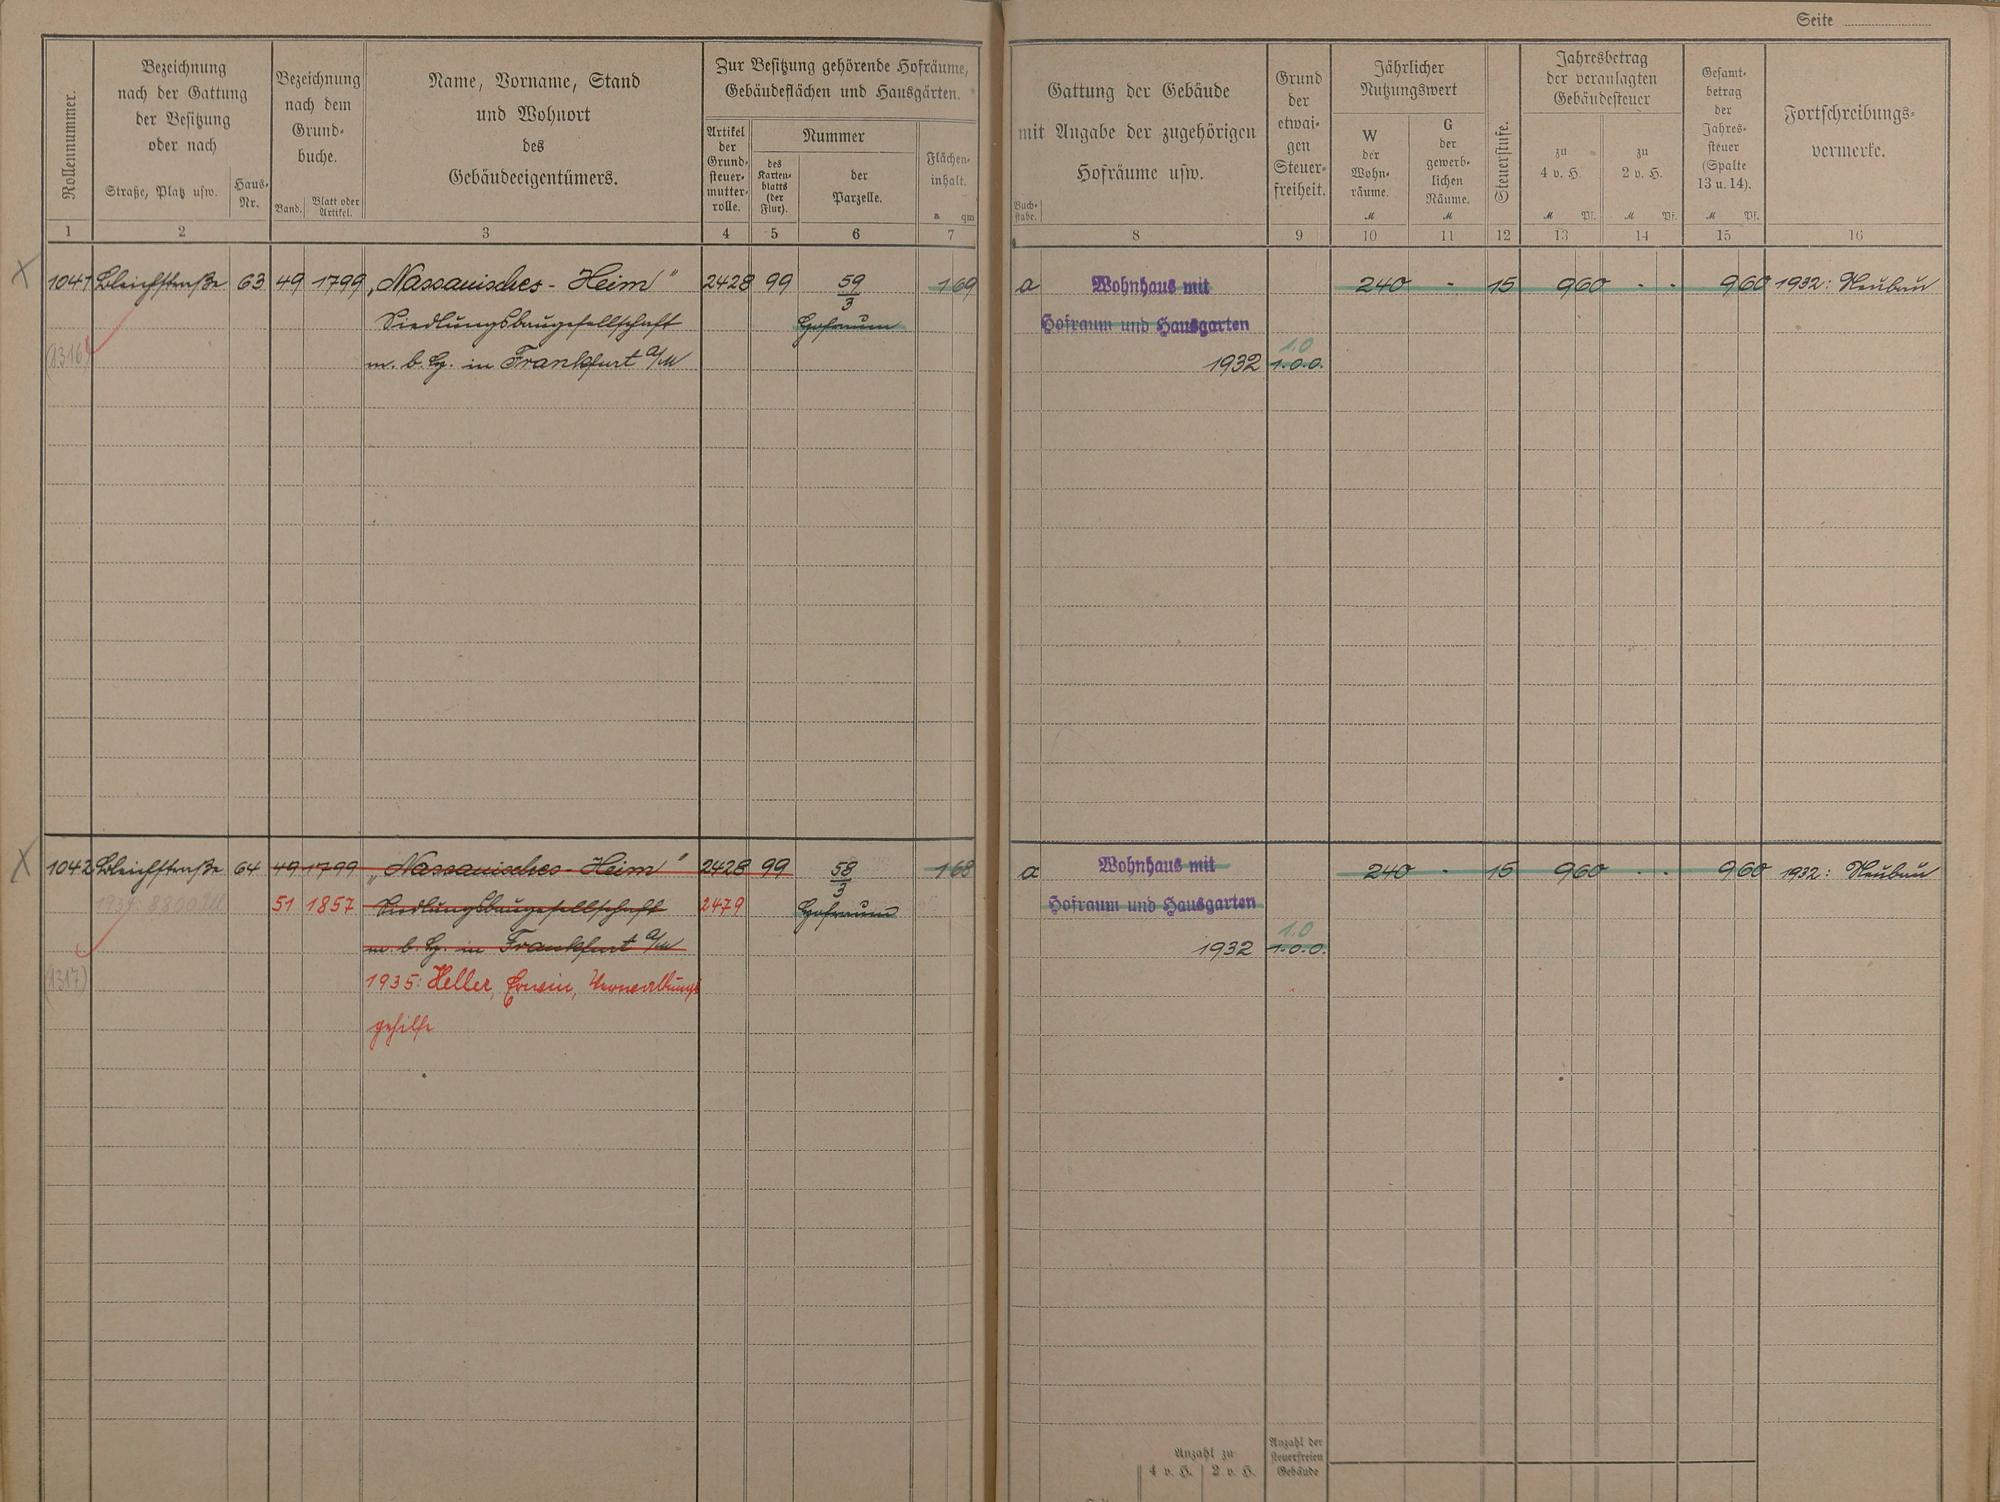 Seite
Rollennummer.
Bezeichnung
nach der Gattung
der Besitzung
oder nach
Straße, Platz usw.
Haus-
Nr.
Bezeichnung
nach dem
Grund-
buche.
Band.
Blatt oder
Artikel.
Name, Vorname, Stand
und Wohnort
des
Gebäudeeigentümers.
Zur Besitzung gehörende Hofräume,
Gebäudeflächen und Hausgärten.
Artikel
der
Grund-
steuer-
mutter-
rolle.
Nummer
des
Karten-
blatts
(der
Flur).
der
Parzelle.
Flächen-
inhalt.
a qm
Buch-
stabe.
Gattung der Gebäude
mit Angabe der zugehörigen
Hofräume usw.
Grund
der
etwai-
gen
Steuer-
freiheit.
Jährlicher
Nutzungswert
W
der
Wohn-
räume.
M
G
der
gewerb-
lichen
Räume.
M
Steuerstufe.
Jahresbetrag
der veranlagten
Gebäudesteuer
zu
4 v. H.
M Pf.
zu
2 v. H.
M Pf.
Gesamt-
betrag
der
Jahres-
steuer
(Spalte
13 u. 14).
M Pf.
Fortschreibungs-
vermerke.
1 2 3 4 5 6 7 8 9 10 11 12 13 14 15 16
1041 Bleichstraße 63 49 1799 „Nassauisches-Heim" 2428 99 59/3 169 a Wohnhaus mit 240 - 15 960 - - 960 1932: Neubau
Siedlungsbaugesellschaft Hofraum Hofraum und Hausgarten
(1316) m. b. H. in Frankfurt a/M 1932 1.0.0.
1.0
1042 Bleichstraße 64 49 1799 „Nassauisches-Heim" 2428 99 58/3 168 a Wohnhaus mit 240 - 15 960 - - 960 1932: Neubau
51 1857 Siedlungsbaugesellschaft 2479 Hofraum Hofraum und Hausgarten
m. b. H. in Frankfurt a/M 1932 1.0.0.
1.0
(1317) 1935: Heller, Erwin, Verwaltungs
gehilfe
Anzahl zu
4 v. H. 2 v. H.
Anzahl der
steuerfreien
Gebäude